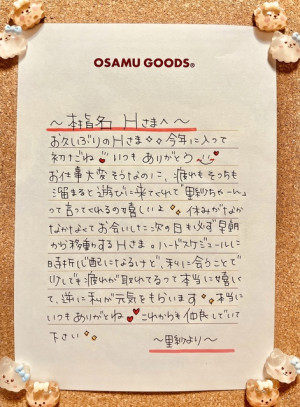 OSAMU GOODS®
〜椎名 Hさまへ〜
お久しぶりのHさま 今年に入って
初だね いつもありがとう
お仕事大変そうなのに、疲れもそっちも
溜まると遊びに来てくれて「里紗ちゃーん」
って言ってくれるの嬉しいよ 休みがなか
なかなくてお会いした次の日も必ず早朝
から移動するHさま。ハードスケジュールに
時折心配になるけど、私に会うことで
少しでも疲れが取れてるって本当に嬉しく
て、逆に私が元気をもらいます 本当に
いつもありがとね これからも仲良しでいて
下さい
〜里紗より〜